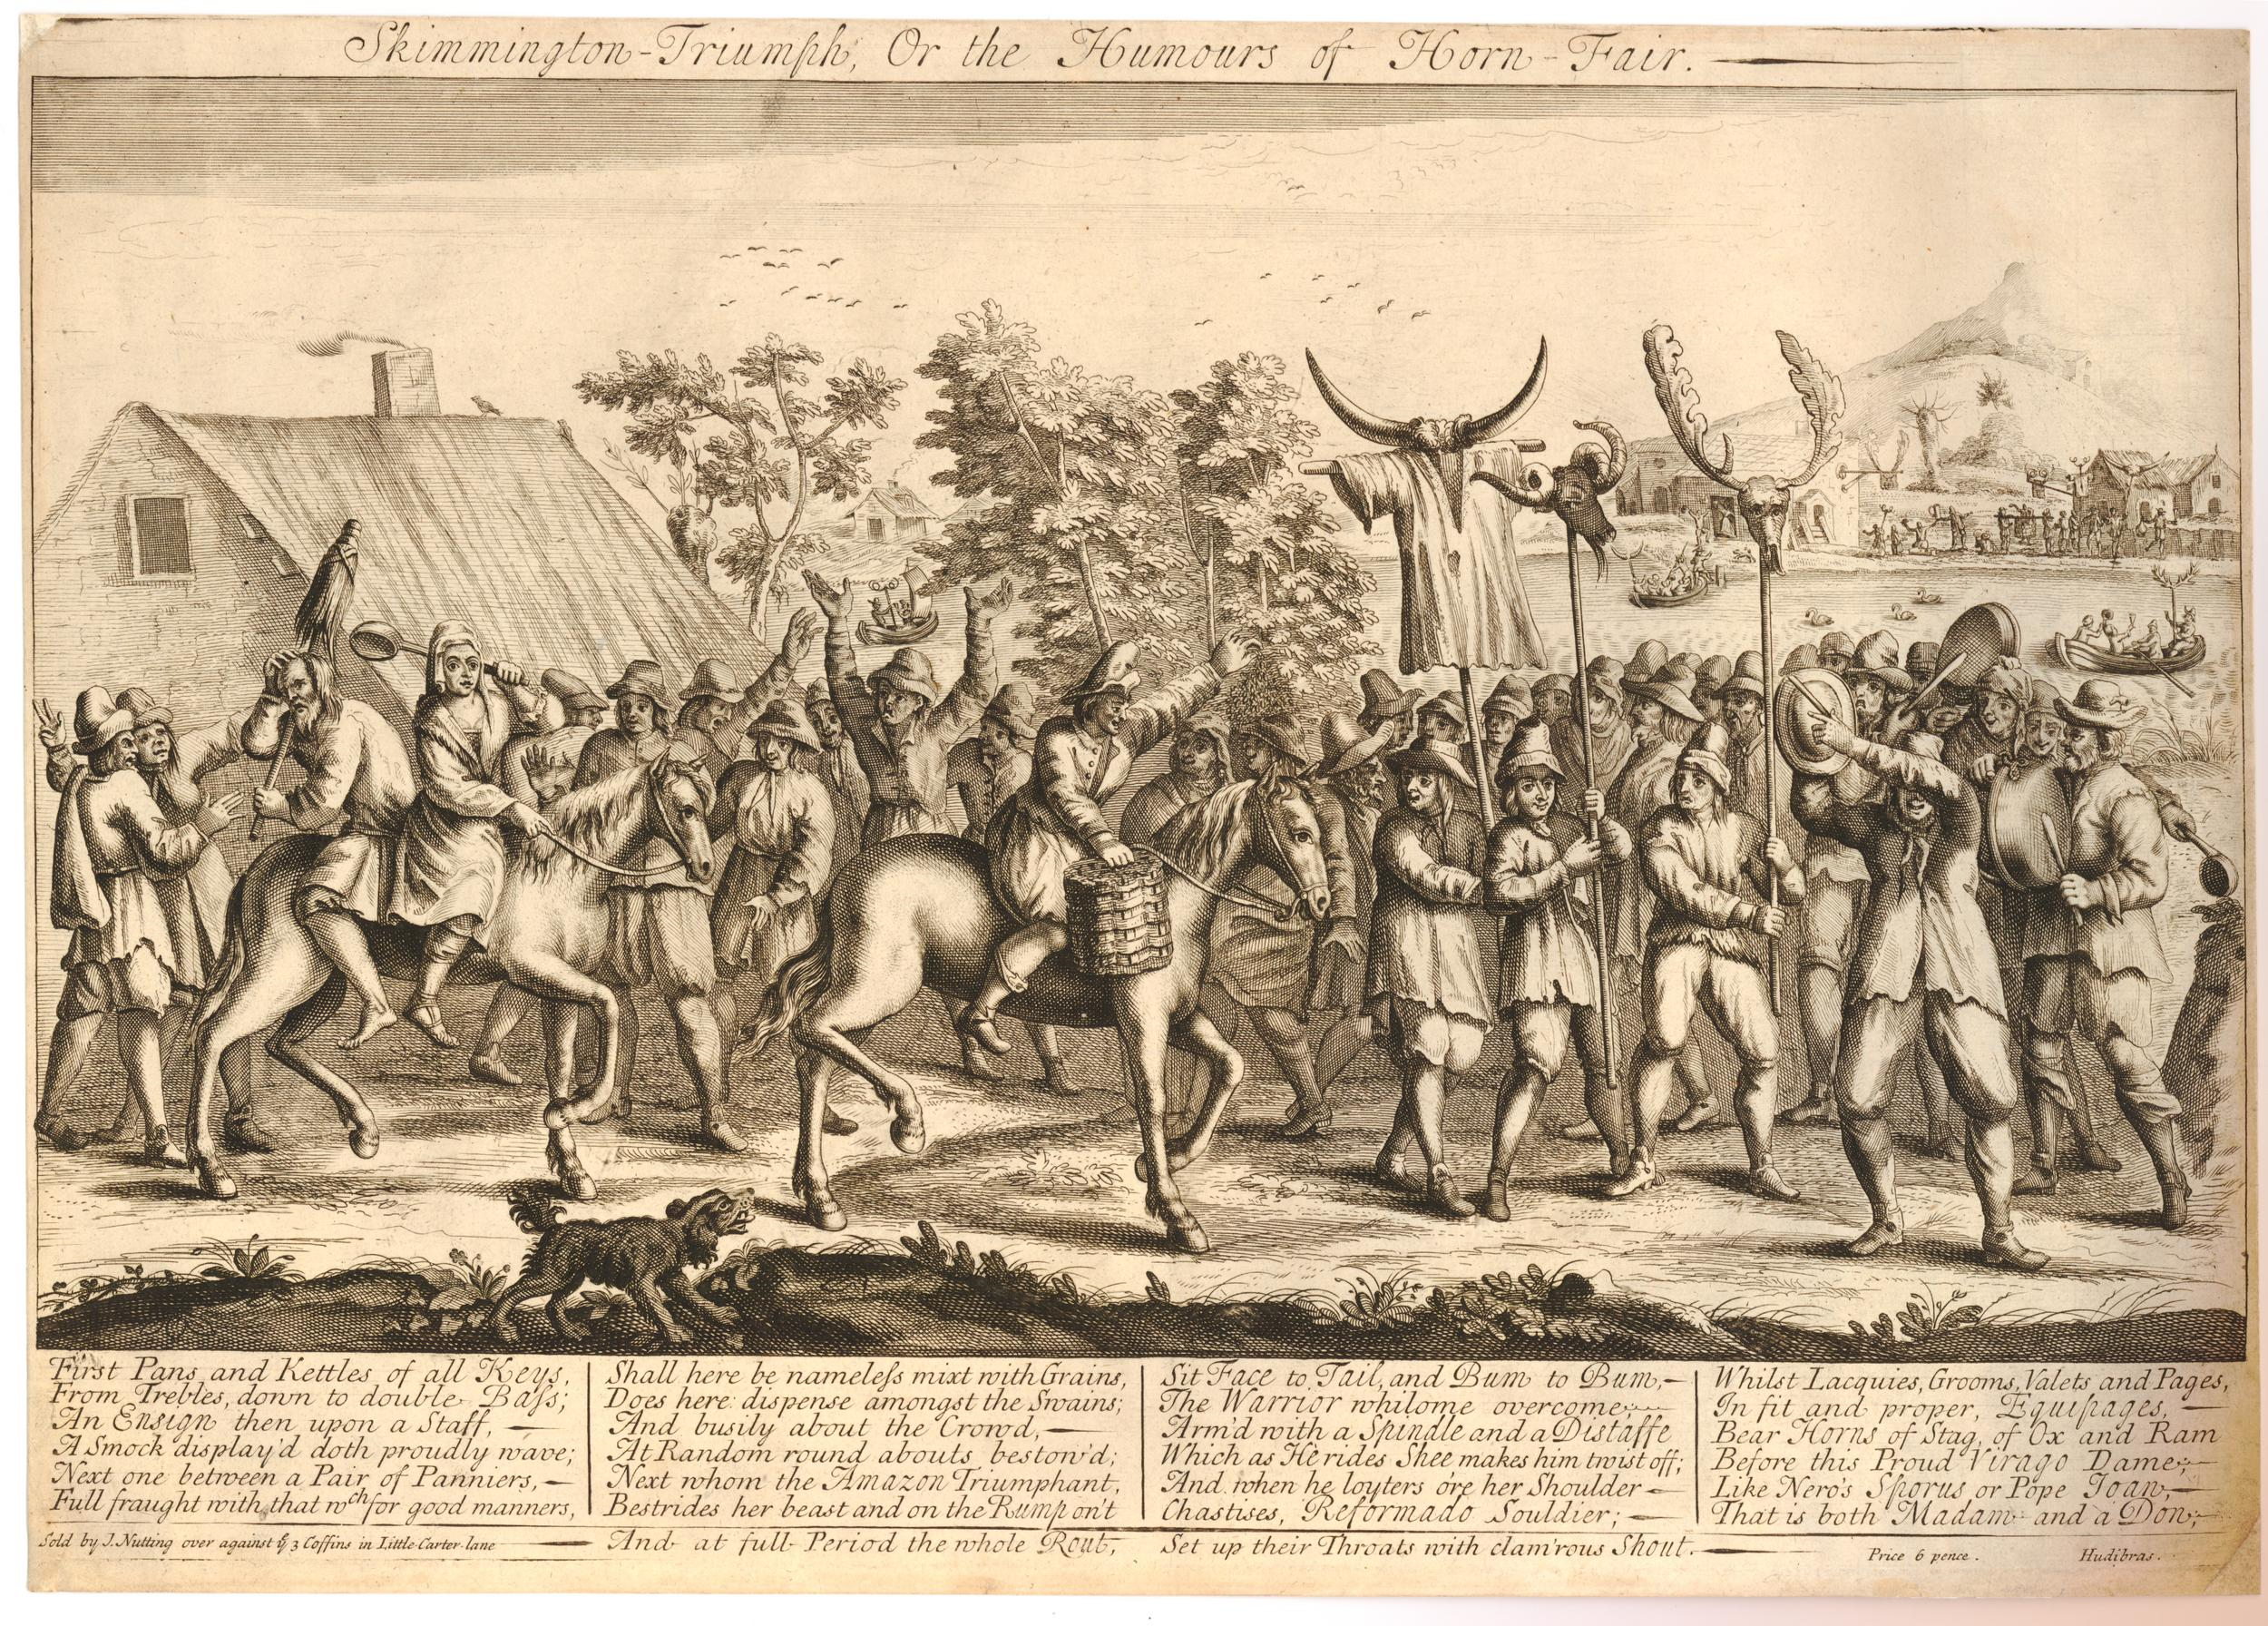 Skimmington-Triumph, Or the Humours of Horn-Fair.
First Pans and Kettles of all Keys,
From Trebles, down to double Bass;
An Ensign then upon a Staff,
A Smock display'd doth proudly wave;
Next one between a Pair of Panniers,
Full fraught with that wch for good manners,
Shall here be nameless mixt with Grains,
Does here dispense amongst the Swains;
And busily about the Crowd,
At Random round abouts bestow'd;
Next whom the Amazon Triumphant,
Bestrides her beast and on the Rump on't
Sit Face to Tail, and Bum to Bum,
The Warrior whilome overcome;
Arm'd with a Spindle and a Distaffe
Which as He rides Shee makes him twist off;
And when he loyters o're her Shoulder
Chastises, Reformado Souldier;
Whilst Lacquies, Grooms, Valets and Pages,
In fit and proper, Equipages,
Bear Horns of Stag, of Ox and Ram
Before this Proud Virago Dame;
Like Nero's Sporus or Pope Joan,
That is both Madam and a Don;
And at full Period the whole Rout,
Set up their Throats with clam'rous Shout.
Sold by J. Nutting over against ye 3 Coffins in Little-Carter-lane
Price 6 pence.
Hudibras.